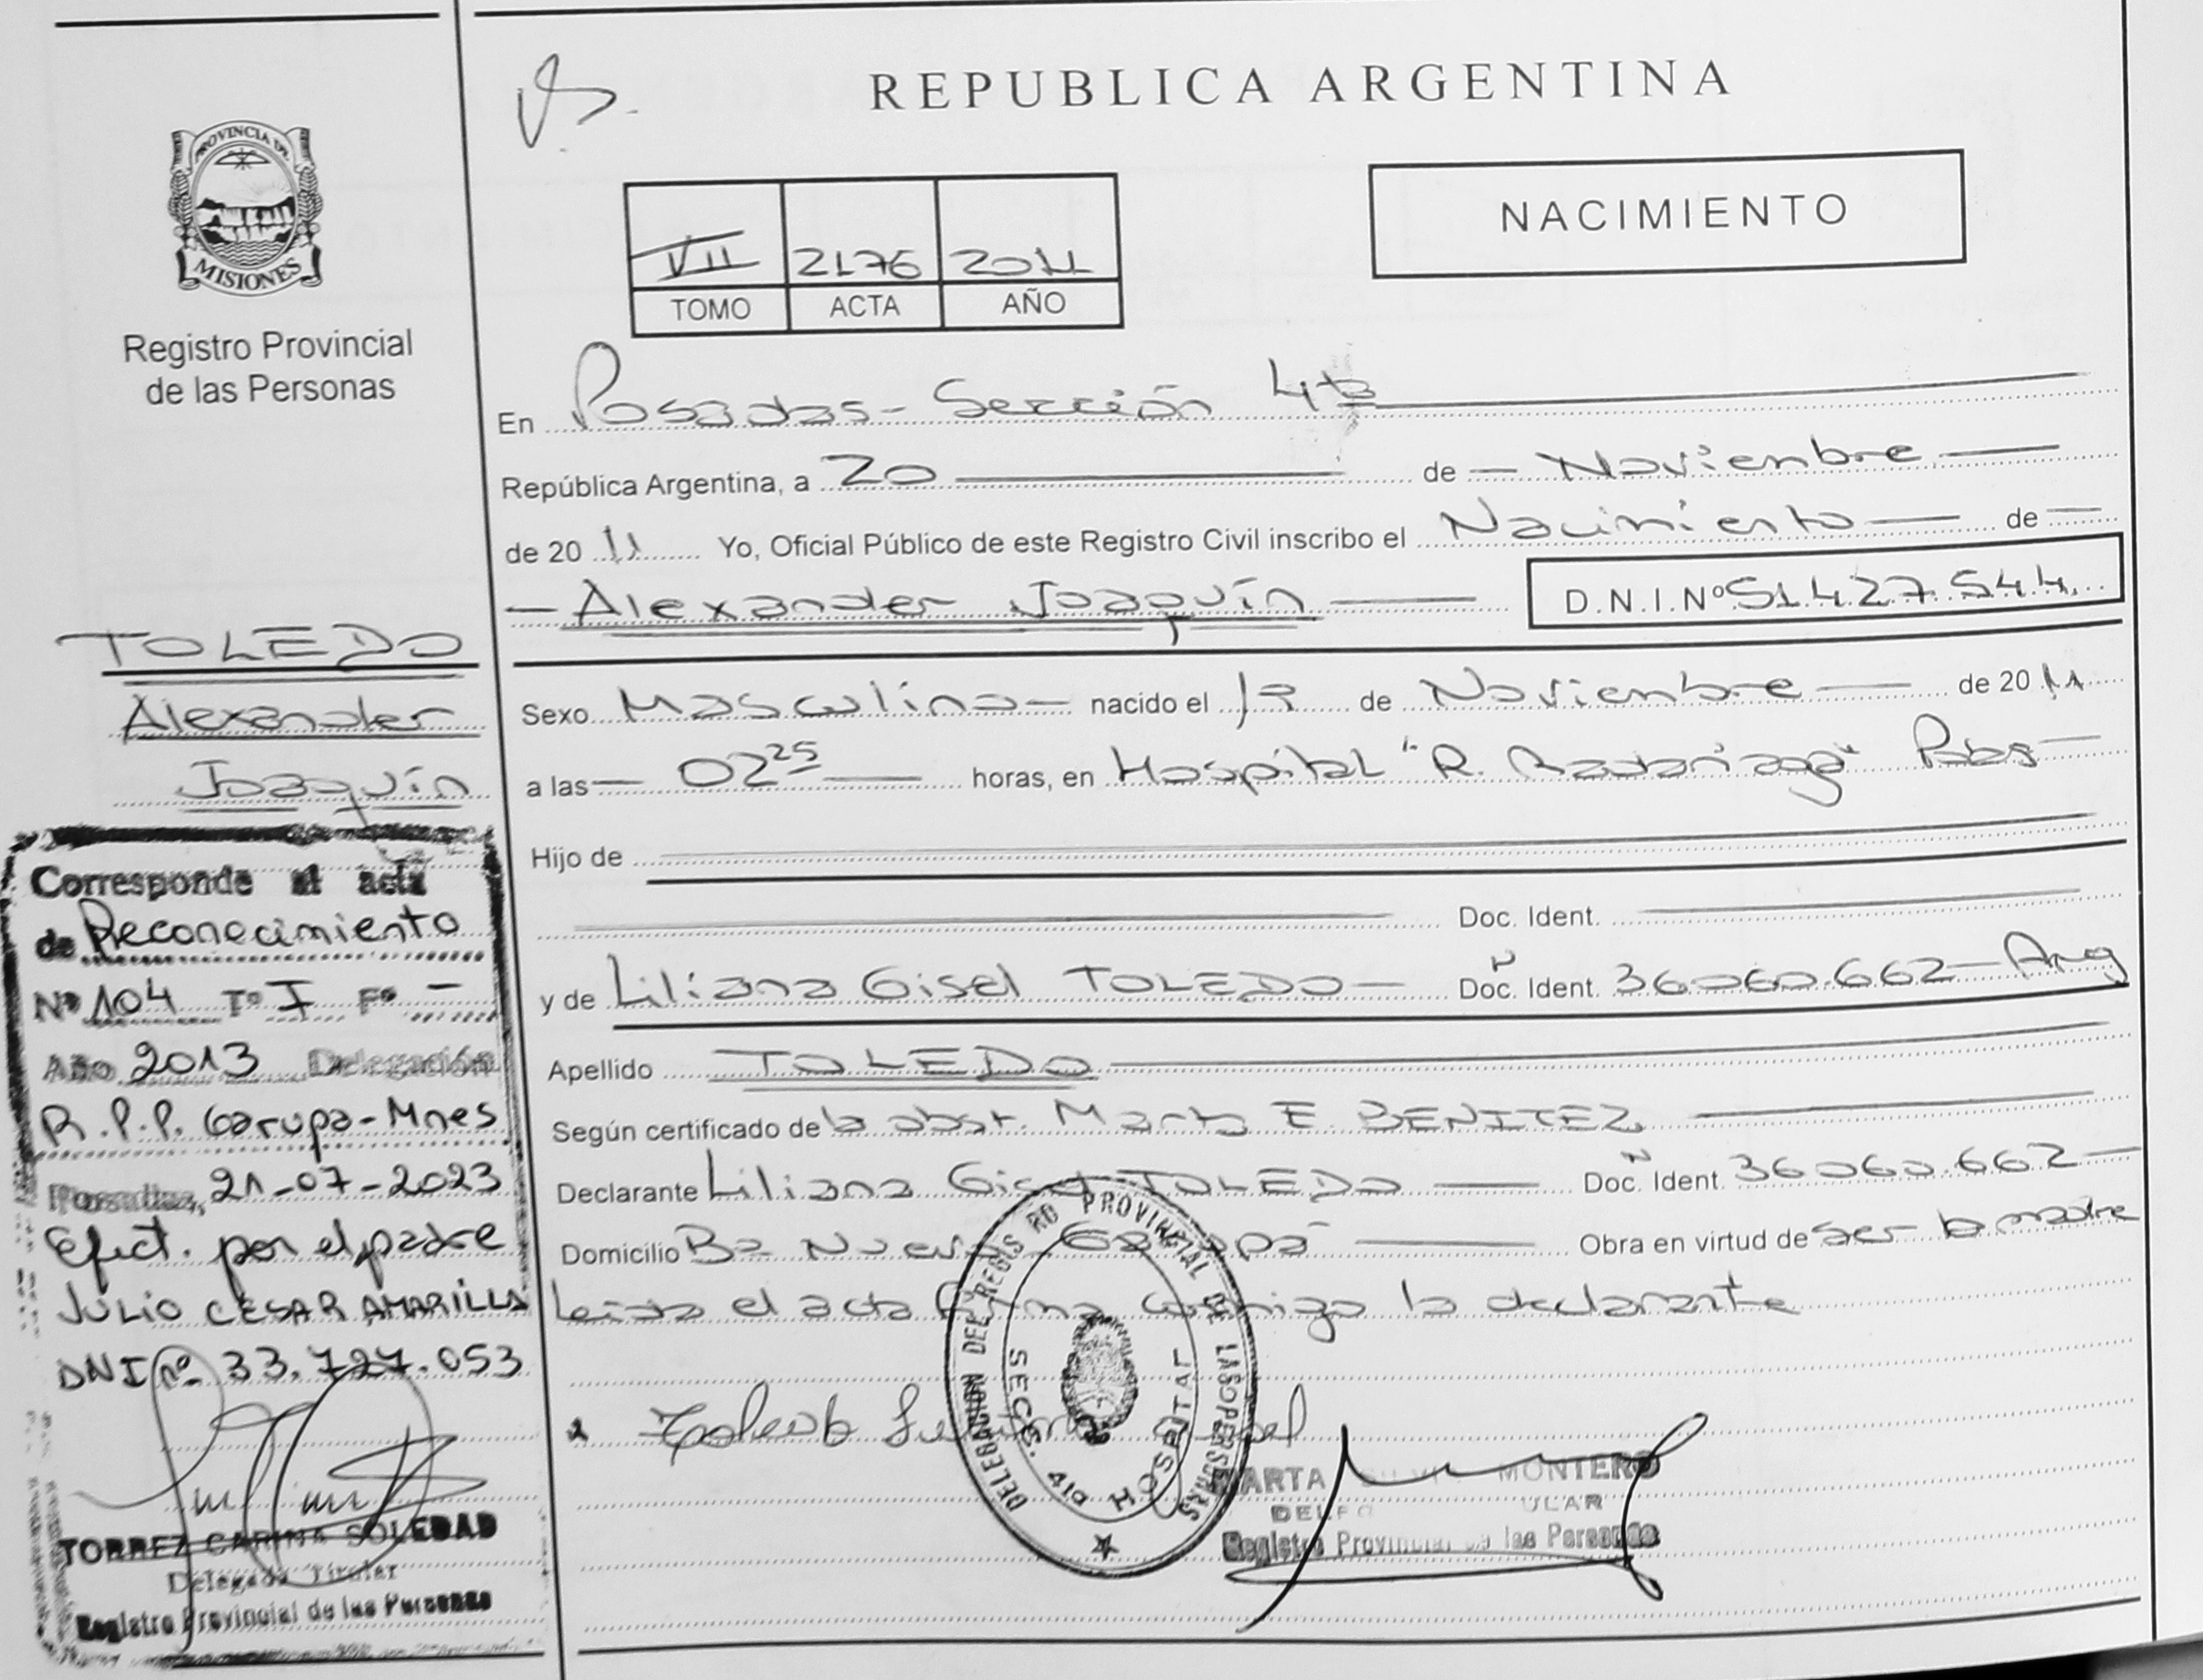 REPUBLICA ARGENTINA
PROVINCIA DE
MISIONES
Registro Provincial
de las Personas
NACIMIENTO
VII 2176 2011
TOMO ACTA AÑO
En Posadas - Sección 4ta
República Argentina, a 20 de Noviembre
de 20 11 Yo, Oficial Público de este Registro Civil inscribo el Nacimiento de
Alexander Joaquín D.N.I.Nº 51.427.544
TOLEDO
Alexander
Joaquín
Sexo Masculino nacido el de Noviembre de 20 11
a las 02 25 horas, en Hospital "R. Madariaga" Pdas
Hijo de
Doc. Ident.
y de Liliana Gisel TOLEDO Doc. Ident. 36060.662 - Arg
Apellido TOLEDO
Según certificado de la obst. Marta E. BENITEZ
Declarante Liliana Gisel TOLEDO Doc. Ident. 36060.662
Domicilio Bº Nuevo Garupá Obra en virtud de ser la madre
Leida el acta firma conmigo la declarante
Corresponde al acta
de Reconocimiento
Nº 104 Tº I Fº -
Año 2013 Delegación
R.P.P. Garupa-Mnes
Posadas, 21-07-2023
Efect. por el padre
JULIO CESAR AMARILLA
DNI nº 33.727.053
TORREZ CARINA SOLEDAD
Delegada Titular
Registro Provincial de las Personas
DELEGACION DEL REGISTRO PROVINCIAL DE LAS PERSONAS
SECC. 4ta HOSPITAL
MONTERO
Registro Provincial de las Personas